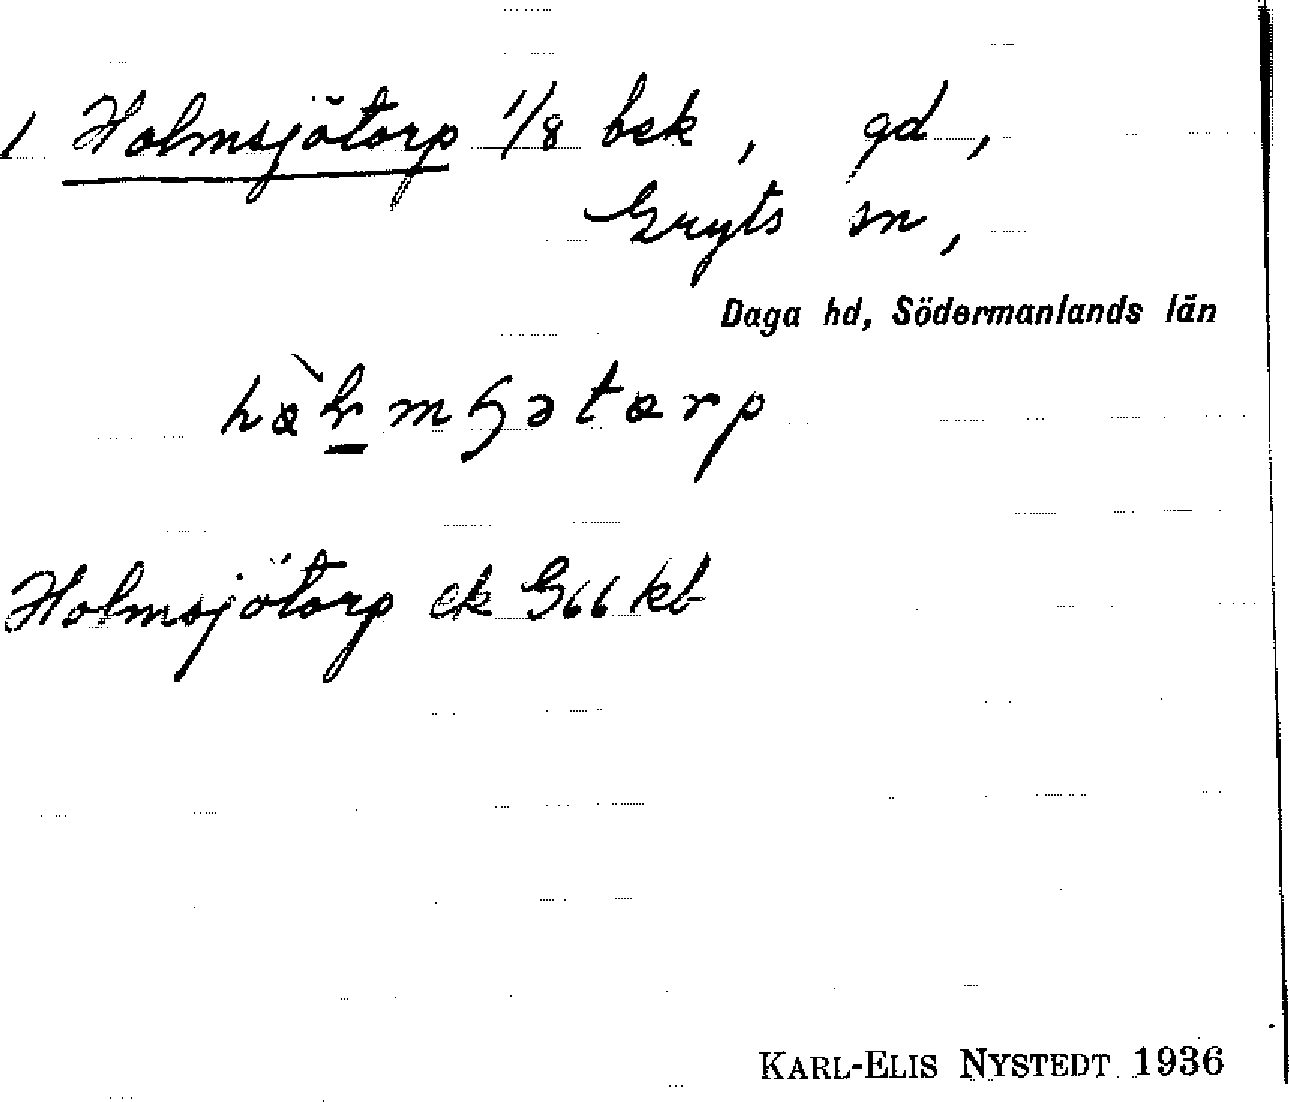 1 Holmsjötorp 1/8 bek, gd,
Gryts sn,
Daga hd, Södermanlands län
Holmsjötorp ek G66 kb
KARL-ELIS NYSTEDT 1936